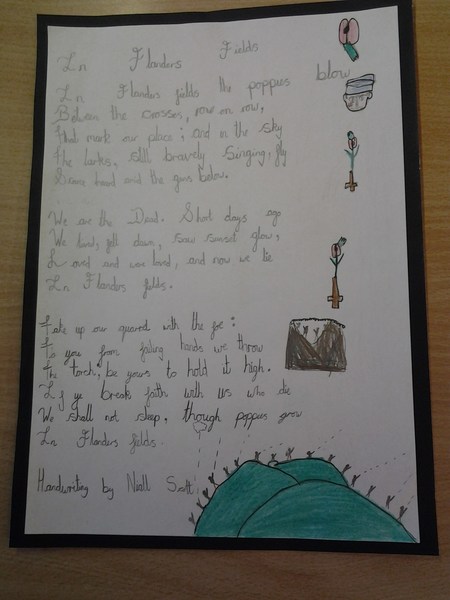 In Flanders Fields
In Flanders fields the poppies blow
Between the crosses, row on row,
That mark our place; and in the sky
The larks, still bravely singing, fly
Scarce heard amid the guns below.
We are the Dead. Short days ago
We lived, felt dawn, saw sunset glow,
Loved and were loved, and now we lie
In Flanders fields.
Take up our quarrel with the foe:
To you from failing hands we throw
The torch, be yours to hold it high.
If ye break faith with us who die
We shall not sleep, though poppies grow
In Flanders fields.
Handwriting by Niall Scott